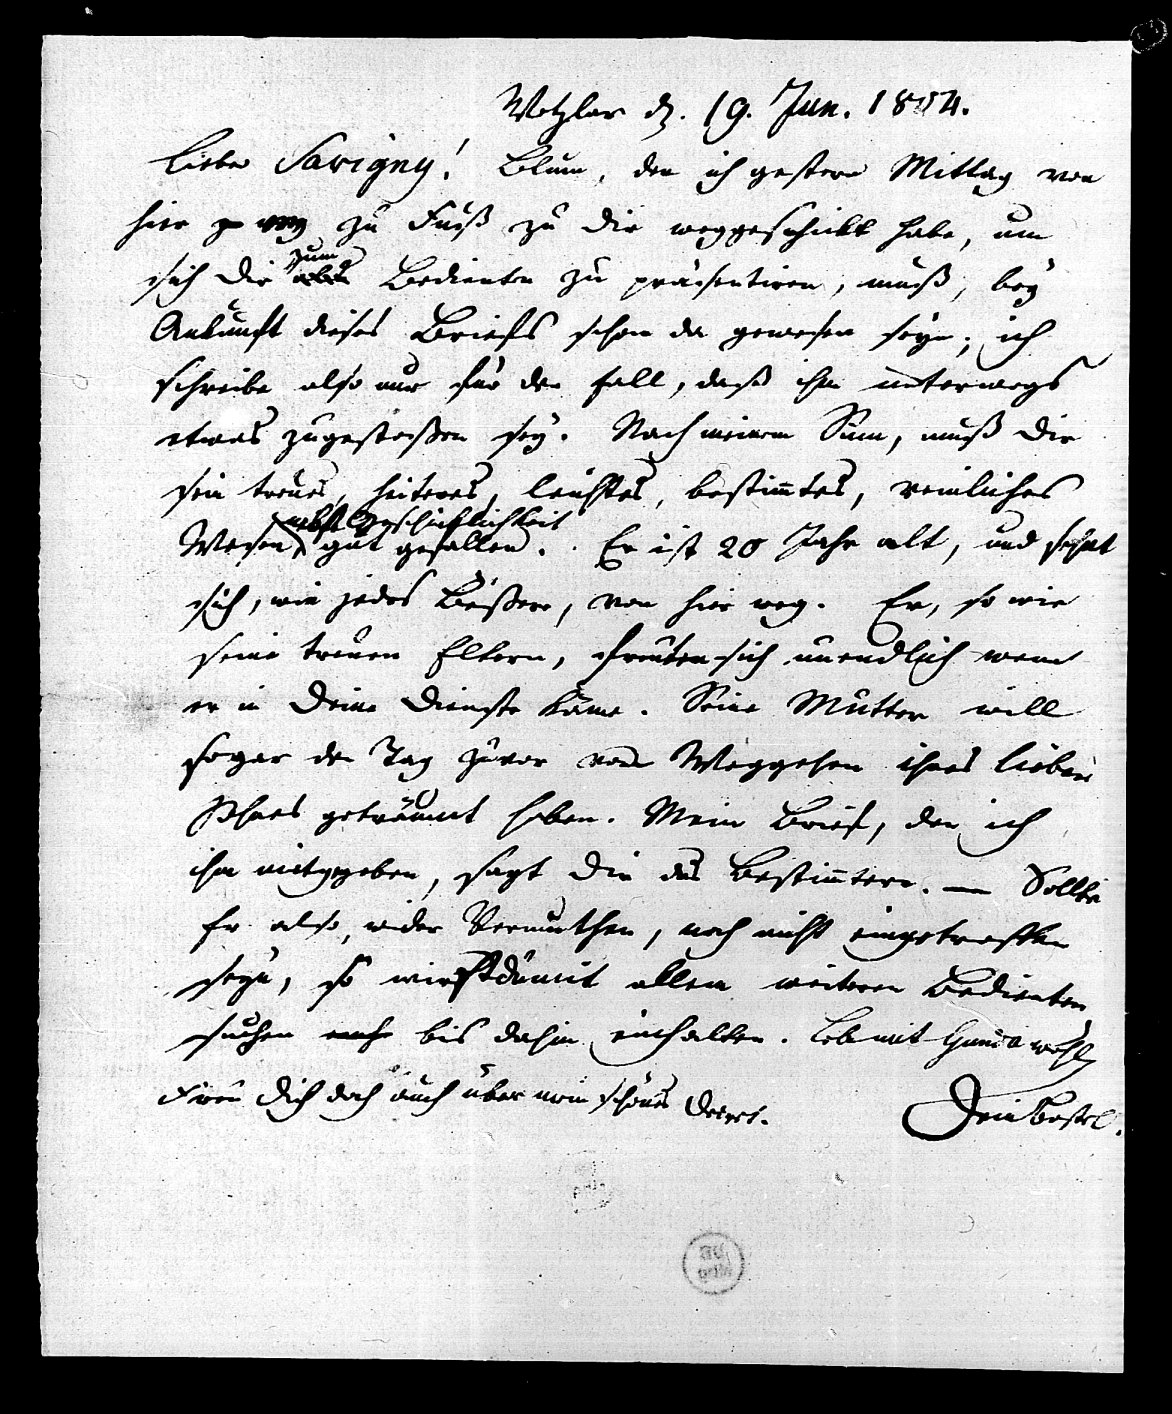 Wetzlar d. 19. Jun. 1804.
Lieber Savigny! Blum, den ich gestern Mittag von
hier zu Fuß zu Dir weggeschickt habe, um
sich Dir zum Bedienten zu präsentiren, muß, bey
Ankunft dieses Briefs schon da gewesen seyn; ich
schreibe also nur für den Fall, daß ihm unterwegs
etwas zugestoßen sey. Nach meinem Sinn, muß Dir
sein treues, heiteres, leichtes, bestimmtes, reinliches
Wesen nebst Geschicklichkeit gut gefallen. Er ist 20 Jahr alt, und sehnt
sich, wie jedes Bessere, von hier weg. Er, so wie
seine treuen Eltern, freuten sich unendlich wenn
er in Deine Dienste käme. Seine Mutter will
sogar den Tag zuvor vom Weggehen ihres lieben
Sohnes geträumt haben. Mein Brief, den ich
ihm mitgegeben, sagt Dir das Bestimmtere. — Sollte
Er also, wider Vermuthen, noch nicht eingetroffen
seyn, so wirst du mit allem weiteren Bedienten
suchen bis dahin einhalten. Leb mit Gunda wohl
Freu Dich doch auch über mein schönes Decret.
Dein Bostel.